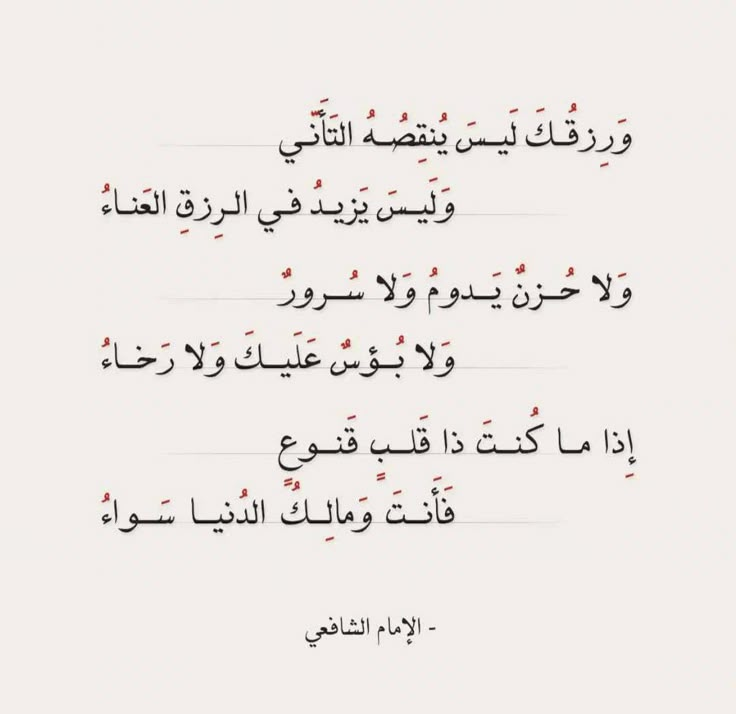 وَرِزقُكَ لَيسَ يُنقِصُهُ التَأَنّي
وَلَيسَ يَزيدُ في الرِزقِ العَناءُ
وَلا حُزنٌ يَدومُ وَلا سُرورٌ
وَلا بُؤسٌ عَلَيكَ وَلا رَخاءُ
إِذا ما كُنتَ ذا قَلبٍ قَنوعٍ
فَأَنتَ وَمالِكُ الدُنيا سَواءُ
- الإمام الشافعي